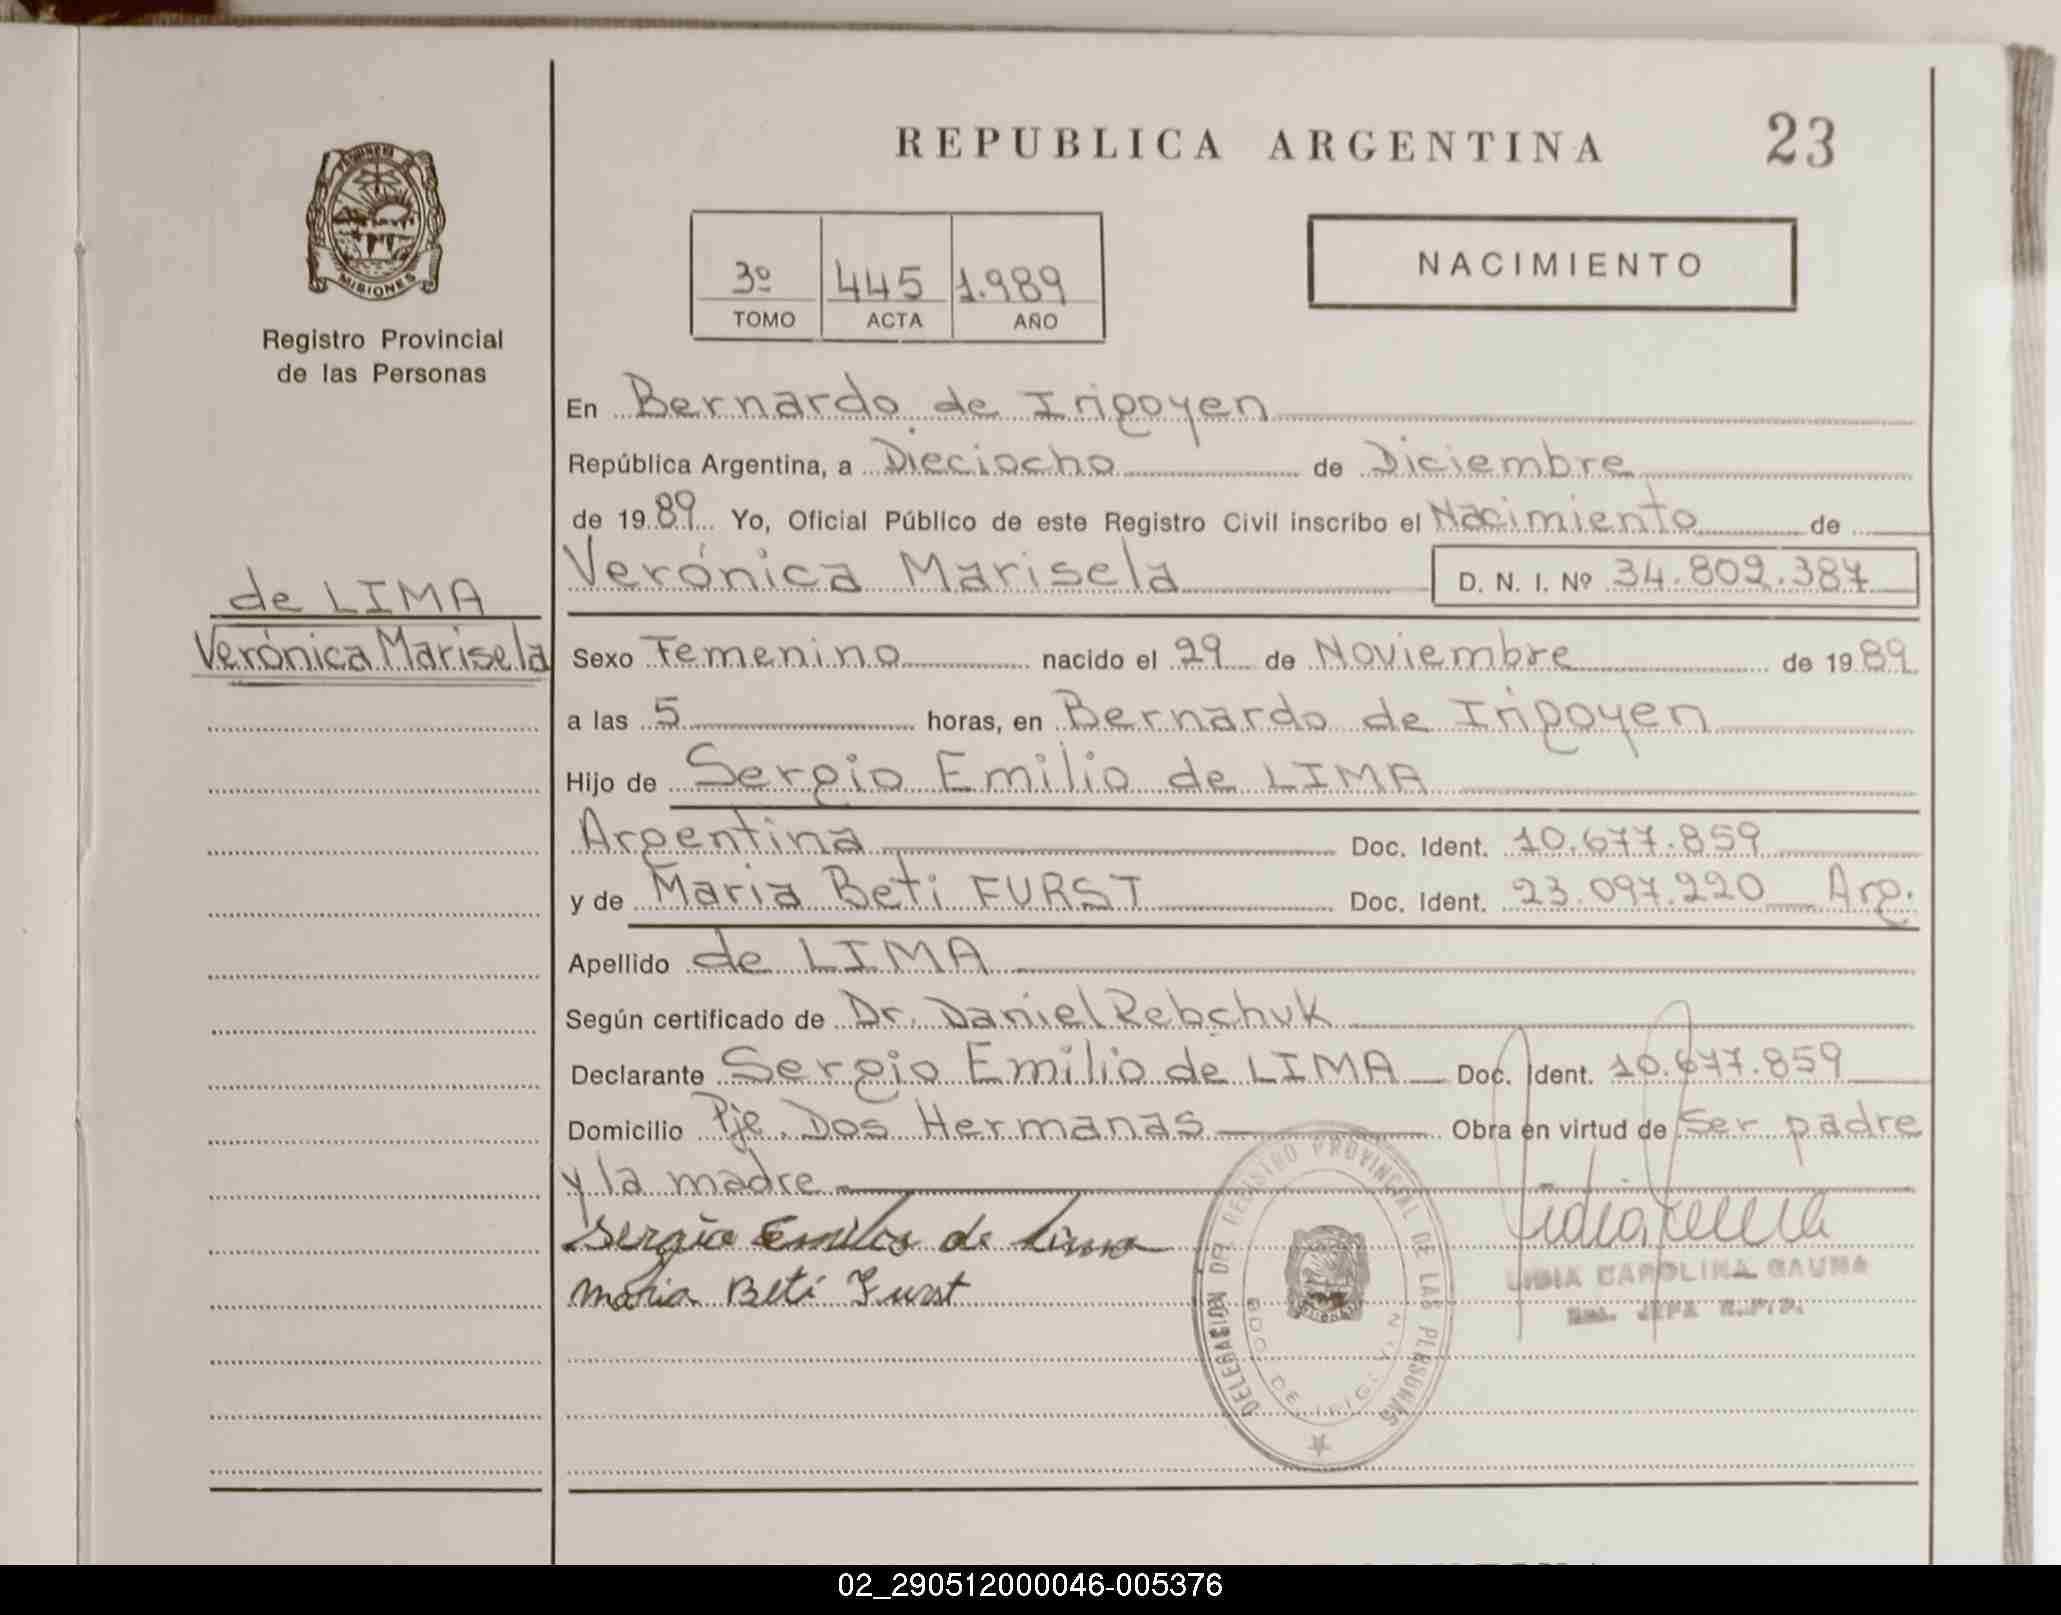 REPUBLICA ARGENTINA
23
MISIONES
Registro Provincial
de las Personas
3º 445 1.989
TOMO ACTA AÑO
NACIMIENTO
En Bernardo de Irigoyen
República Argentina, a Dieciocho de Diciembre
de 1989 Yo, Oficial Público de este Registro Civil inscribo el Nacimiento de
Verónica Marisela D. N. I. Nº 34.802.387
de LIMA
Verónica Marisela
Sexo Femenino nacido el 29 de Noviembre de 1989
a las 5 horas, en Bernardo de Irigoyen
Hijo de Sergio Emilio de LIMA
Argentina Doc. Ident. 10.677.859
y de Maria Beti FURST Doc. Ident. 23.097.220 Arg.
Apellido de LIMA
Según certificado de Dr. Daniel Rebchuk
Declarante Sergio Emilio de LIMA Doc. Ident. 10.677.859
Domicilio Pje. Dos Hermanas Obra en virtud de Ser padre
y la madre
Sergio Emilio de Lima
Maria Beti Furst
LIDIA CAROLINA GAUNA
JEFA R.P.P.
DELEGACION DEL REGISTRO PROVINCIAL DE LAS PERSONAS
BDO DE IRIGOYEN
02_290512000046-005376